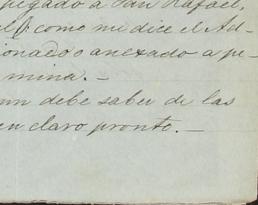 pegado à San Rafael,
como me dice el Ad-
cionado o anexado a pe-
mina. —
debe saber de las
en claro pronto. —